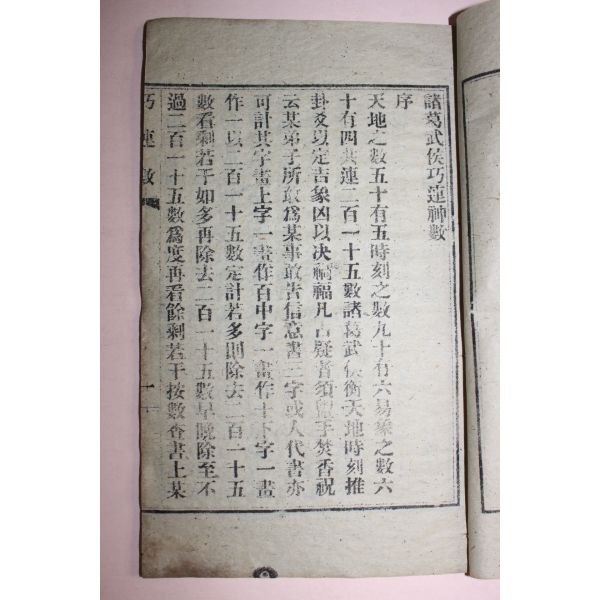 諸葛武侯巧連神數
序
天地之數五十有五時刻之數九十有六易象之數六
十有四共連二百一十五數諸葛武侯衡天地時刻推
卦爻以定吉象凶以决禍福凡占疑者須盥手焚香祝
云某弟子所敢爲某事敢告信意書三字或人代書亦
可計其字畫上字一畫作百中字一畫作十下字一畫
作一以二百一十五數定計若多則除去二百一十五
數看剩若干如多再除去二百一十五數星曉除至不
過二百一十五數爲度再看餘剩若干按數查書上某
巧連數
一